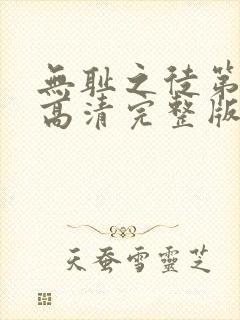 無耻之徒第
高清完整版
天蚕雪靈芝